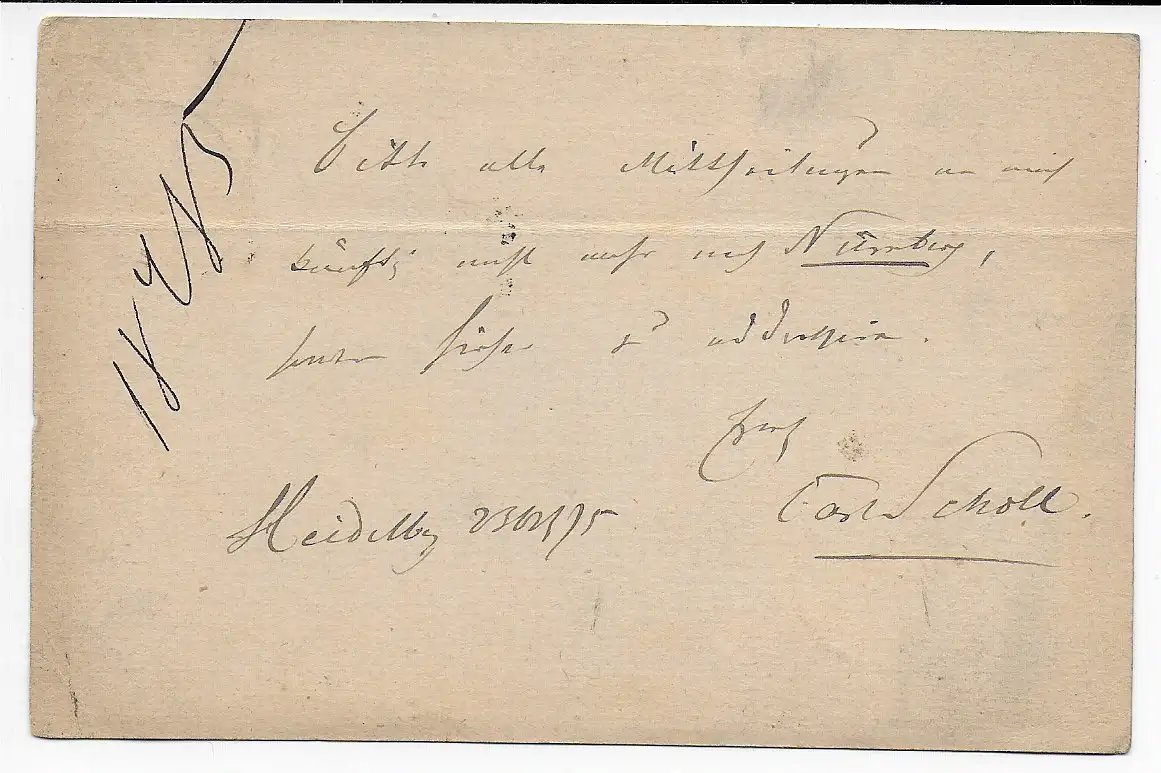 Bitte alle Mittheilungen an mich
künftig nicht mehr nach Nürnberg,
sondern hierher zu addressiren.
Carl Scholl.
Heidelbg 23 Oct 75